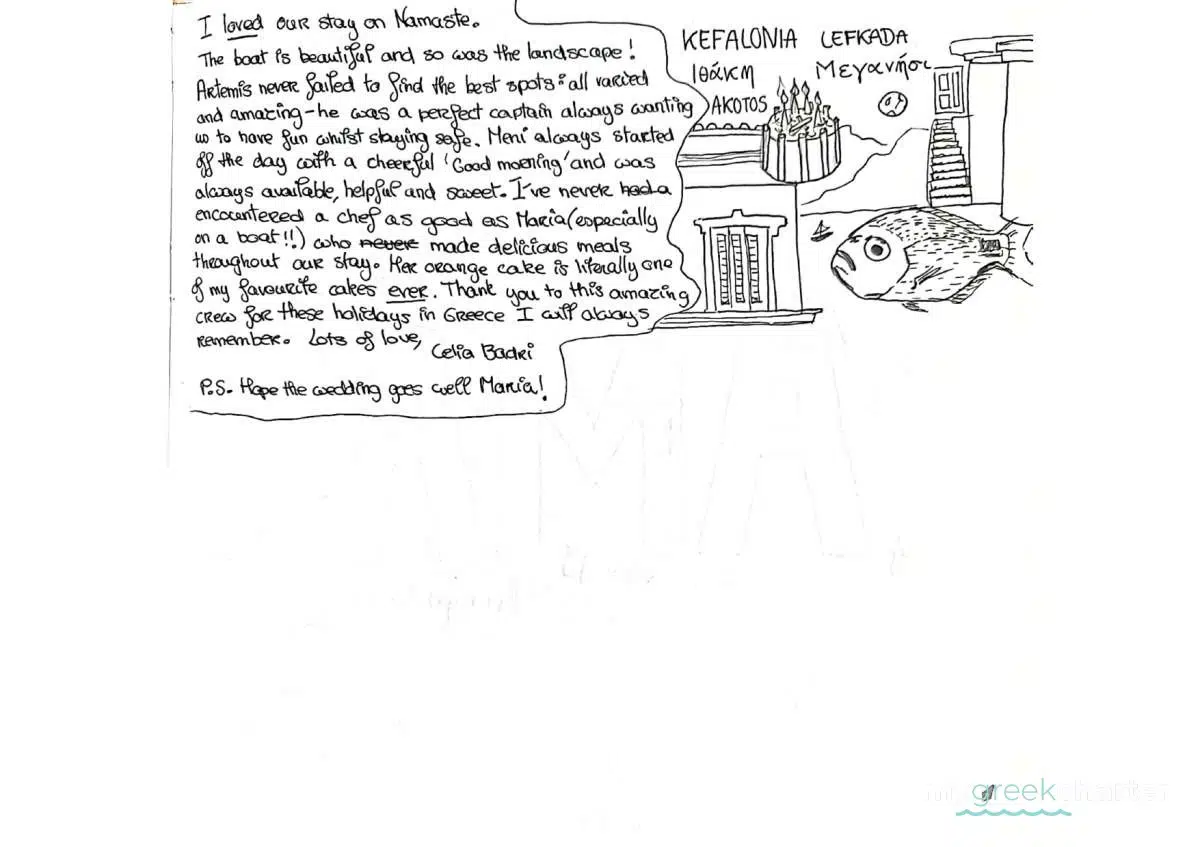 I loved our stay on Namaste.
The boat is beautiful and so was the landscape!
Artemis never failed to find the best spots: all varied
and amazing - he was a perfect captain always wanting
us to have fun whilst staying safe. Meni always started
off the day with a cheerful 'Good morning' and was
always available, helpful and sweet. I've never had a
encountered a chef as good as Maria (especially
on a boat!!) who never made delicious meals
throughout our stay. Her orange cake is literally one
of my favourite cakes ever. Thank you to this amazing
crew for these holidays in Greece I will always
remember. Lots of love,
Celia Badri
P.S. Hope the wedding goes well Maria!
KEFALONIA LEFKADA
Ιθάκη Μεγανήσι
ΑΚΟΤΟS
my greek charter